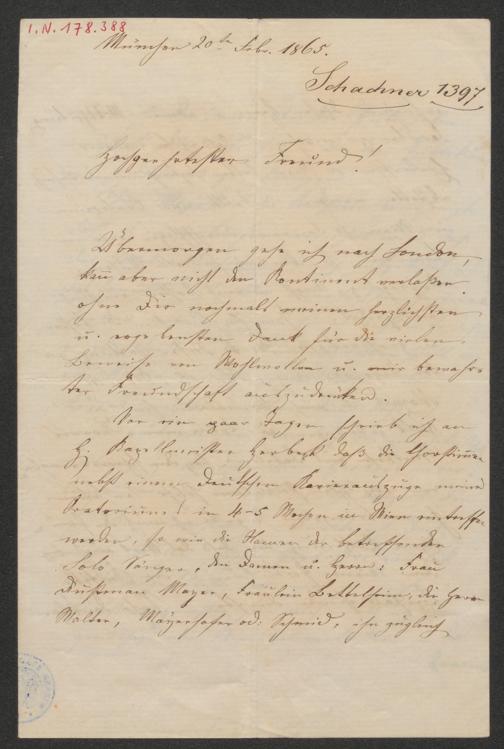 I.N. 178.388
München 20te Febr. 1865.
Schachner 1397
Hochgeehrtester Freund!
Übermorgen gehe ich nach London,
kann aber nicht den Kontinent verlaßen
ohne Dir nochmals meinen herzlichsten
u. ergebensten Dank für die vielen
Beweise von Wohlwollen u. mir bewahr-
ter Freundschaft auszudrücken.
Vor ein paar Tagen schrieb ich an
H. Kapellmeister Herbeck daß die Chorstimmen
nebst einem Deutschen Klavierauszuge meines
Oratoriums in 4-5 Wochen in Wien eintreffen
werden, so wie die Namen der betreffenden
Solo Sänger, den Damen u. Herrn: Frau
Dustman Meyer, Fräulein Bettelheim, die Herrn
Walter, Mayerhofer od: Schmid, ihn zugleich